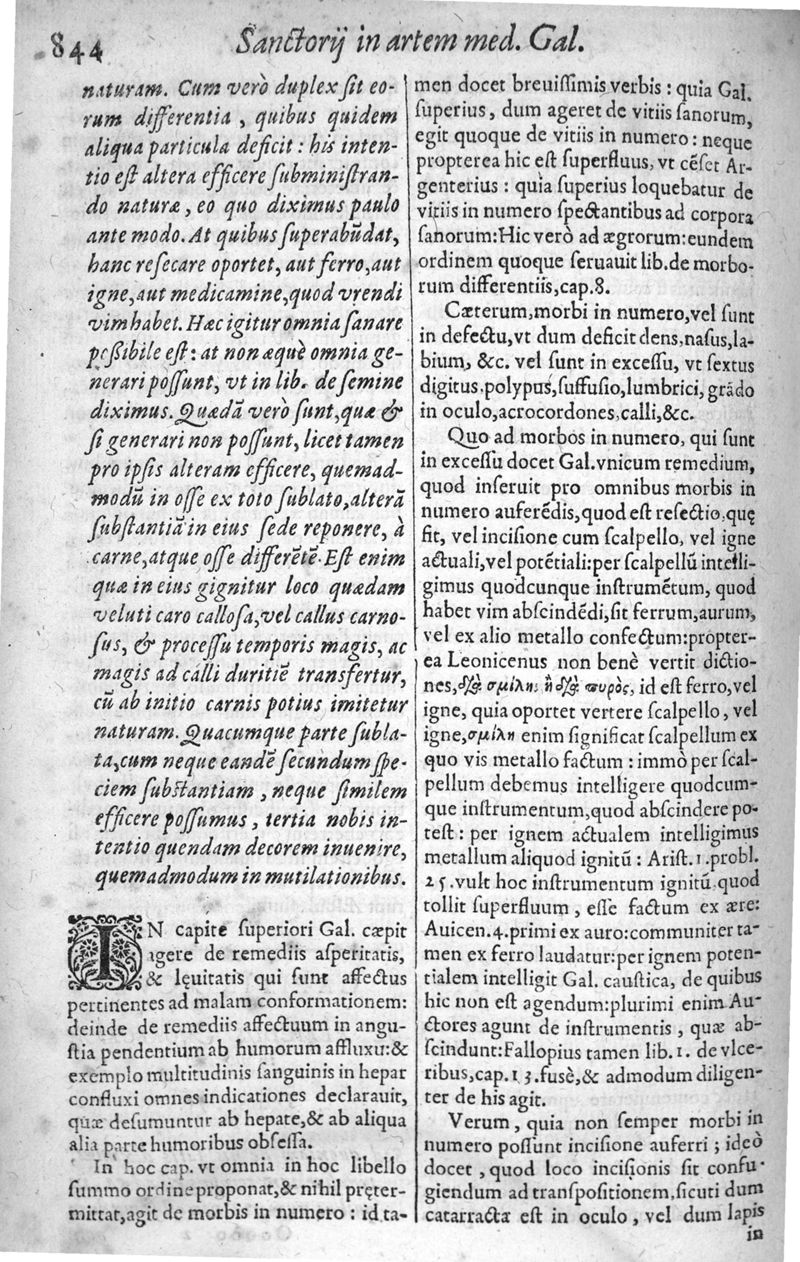 844
Sanctorij in artem med. Gal.
naturam. Cum verò duplex ſit eo-
rum differentia, quibus quidem
aliqua particula deficit: his inten-
tio eſt altera efficere ſubminiſtran-
do naturæ, eo quo diximus paulo
ante modo. At quibus ſuperabũdat,
hanc reſecare oportet, aut ferro, aut
igne, aut medicamine, quod vrendi
vim habet. Hæc igitur omnia ſanare
poßibile eſt: at non æquè omnia ge-
nerari poſſunt, vt in lib. de ſemine
diximus. Quædã verò ſunt, quæ &
ſi generari non poſſunt, licet tamen
pro ipſis alteram efficere, quemad-
modũ in oſſe ex toto ſublato, alterã
ſubſtantiã in eius ſede reponere, à
carne, atque oſſe differẽtẽ. Eſt enim
quæ in eius gignitur loco quædam
veluti caro calloſa, vel callus carno-
ſus, & proceſſu temporis magis, ac
magis ad calli duritiẽ transfertur,
cũ ab initio carnis potius imitetur
naturam. Quacumque parte ſubla-
ta, cum neque eandẽ ſecundum ſpe-
ciem ſubſtantiam, neque ſimilem
efficere poſſumus, tertia nobis in-
tentio quendam decorem inuenire,
quemadmodum in mutilationibus.
IN capite ſuperiori Gal. cæpit
agere de remediis aſperitatis,
& lęuitatis qui ſunt affectus
pertinentes ad malam conformationem:
deinde de remediis affectuum in angu-
ſtia pendentium ab humorum affluxu: &
exemplo multitudinis ſanguinis in hepar
confluxi omnes indicationes declarauit,
quæ deſumuntur ab hepate, & ab aliqua
alia parte humoribus obſeſſa.
In hoc cap. vt omnia in hoc libello
ſummo ordine proponat, & nihil pręter-
mittat, agit de morbis in numero: id ta-
men docet breuiſſimis verbis: quia Gal.
ſuperius, dum ageret de vitiis ſanorum,
egit quoque de vitiis in numero: neque
propterea hic eſt ſuperfluus, vt cẽſet Ar-
genterius: quia ſuperius loquebatur de
vitiis in numero ſpectantibus ad corpora
ſanorum: Hic verò ad ægrorum: eundem
ordinem quoque ſeruauit lib. de morbo-
rum differentiis, cap. 8.
Cæterum, morbi in numero, vel ſunt
in defectu, vt dum deficit dens, naſus, la-
bium, &c. vel ſunt in exceſſu, vt ſextus
digitus, polypus, ſuffuſio, lumbrici, grãdo
in oculo, acrocordones, calli, &c.
Quo ad morbos in numero, qui ſunt
in exceſſu docet Gal. vnicum remedium,
quod inſeruit pro omnibus morbis in
numero auferẽdis, quod eſt reſectio, quę
fit, vel inciſione cum ſcalpello, vel igne
actuali, vel potẽtiali: per ſcalpellũ intelli-
gimus quodcunque inſtrumẽtum, quod
habet vim abſcindẽdi, ſit ferrum, aurum,
vel ex alio metallo confectum: propter-
ea Leonicenus non benè vertit dictio-
nes, διὰ σμίλη, ἢ διὰ πυρὸς, id eſt ferro, vel
igne, quia oportet vertere ſcalpello, vel
igne, σμίλη enim ſignificat ſcalpellum ex
quo vis metallo factum: immò per ſcal-
pellum debemus intelligere quodcum-
que inſtrumentum, quod abſcindere po-
teſt: per ignem actualem intelligimus
metallum aliquod ignitũ: Ariſt. 1. probl.
25. vult hoc inſtrumentum ignitũ quod
tollit ſuperfluum, eſſe factum ex ære:
Auicen. 4. primi ex auro: communiter ta-
men ex ferro laudatur: per ignem poten-
tialem intelligit Gal. cauſtica, de quibus
hic non eſt agendum: plurimi enim Au-
ctores agunt de inſtrumentis, quæ ab-
ſcindunt: Fallopius tamen lib. 1. de vlce-
ribus, cap. 13. fusè, & admodum diligen-
ter de his agit.
Verum, quia non ſemper morbi in
numero poſſunt inciſione auferri; ideò
docet, quod loco inciſionis ſit confu-
giendum ad tranſpoſitionem, ſicuti dum
catarracta eſt in oculo, vel dum lapis
in